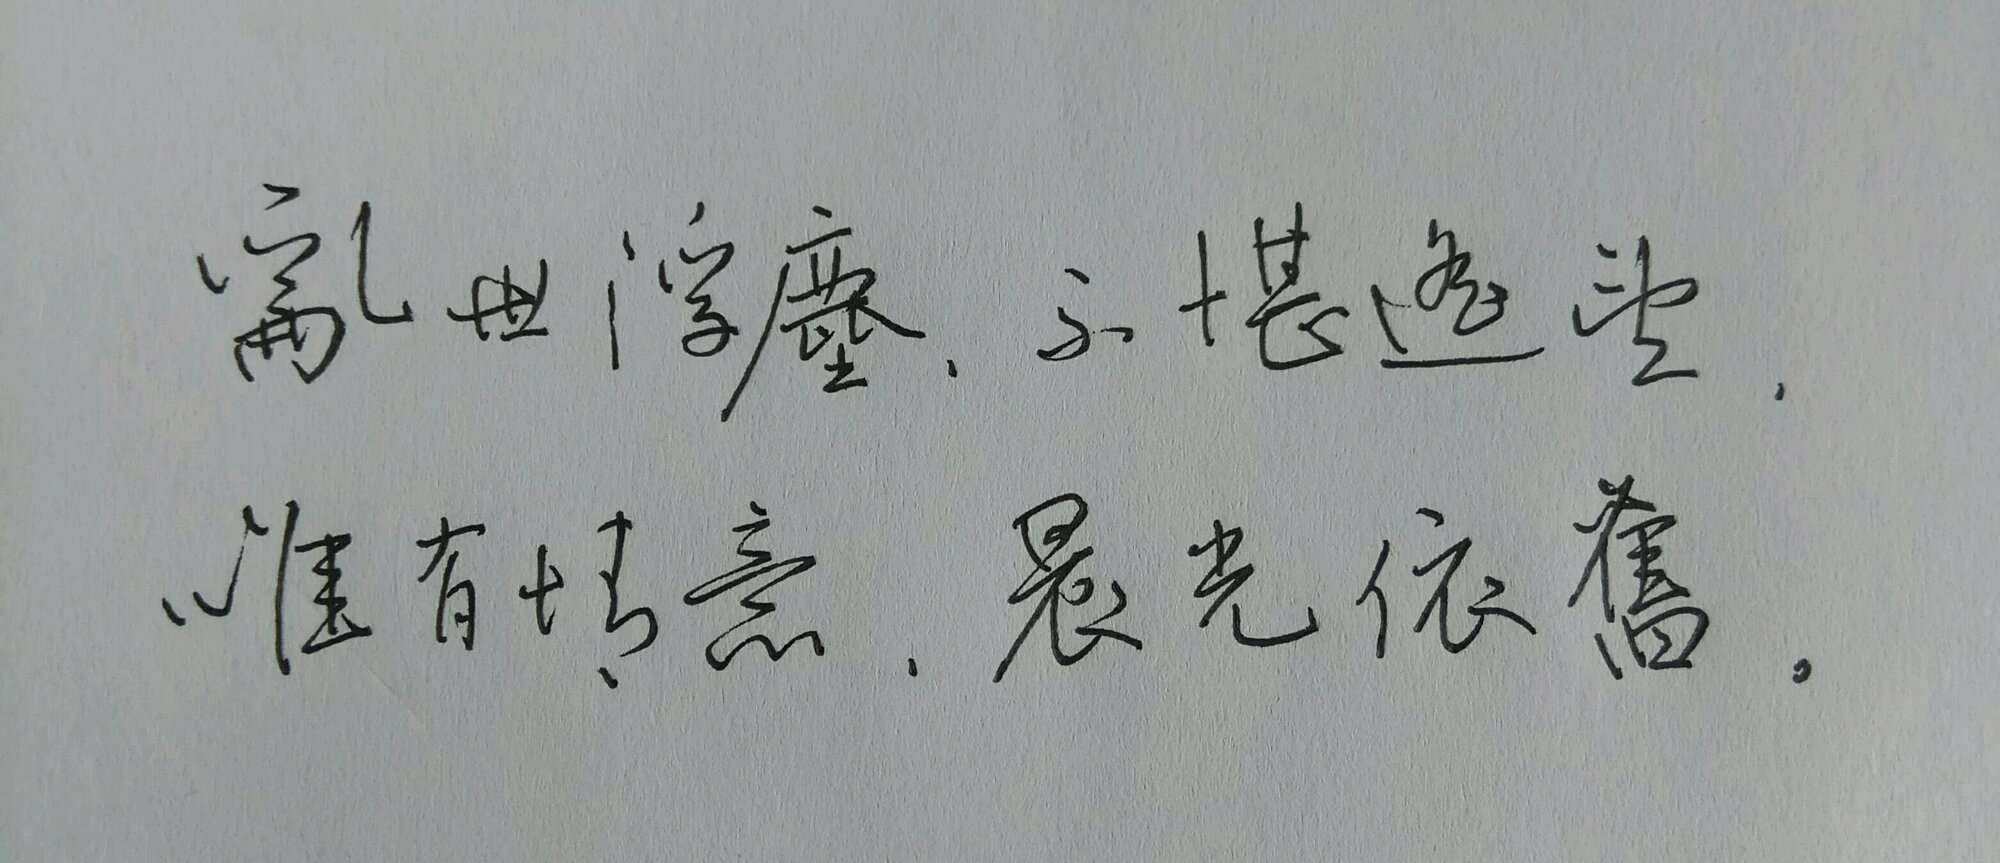 亂世浮塵,不堪遙望,
唯有情意,晨光依舊。